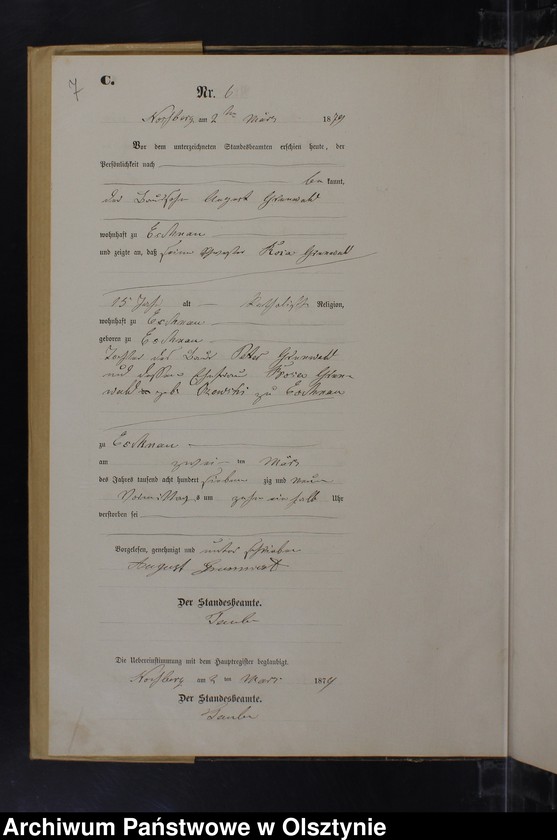 7
C.
Nr. 6
am 2 ten März 1879
Vor dem unterzeichneten Standesbeamten erschien heute, der
Persönlichkeit nach
be kannt,
der August Grunwald
wohnhaft zu Eschnau
und zeigte an, daß seine Schwester Rosa Grunwald
15 Jahr alt katholisch Religion,
wohnhaft zu Eschnau
geboren zu Eschnau
Tochter des Bauer Peter Grunwald
und dessen Ehefrau Grun-
wald geb. zu Eschnau
zu Eschnau
am zwei ten März
des Jahres tausend acht hundert sieben zig und neun
Vormittags um zehn ein halb Uhr
verstorben sei
Vorgelesen, genehmigt und unterschrieben
August Grunwald
Der Standesbeamte.
Die Uebereinstimmung mit dem Hauptregister beglaubigt.
am 2 ten März 1879
Der Standesbeamte.
Archiwum Państwowe w Olsztynie